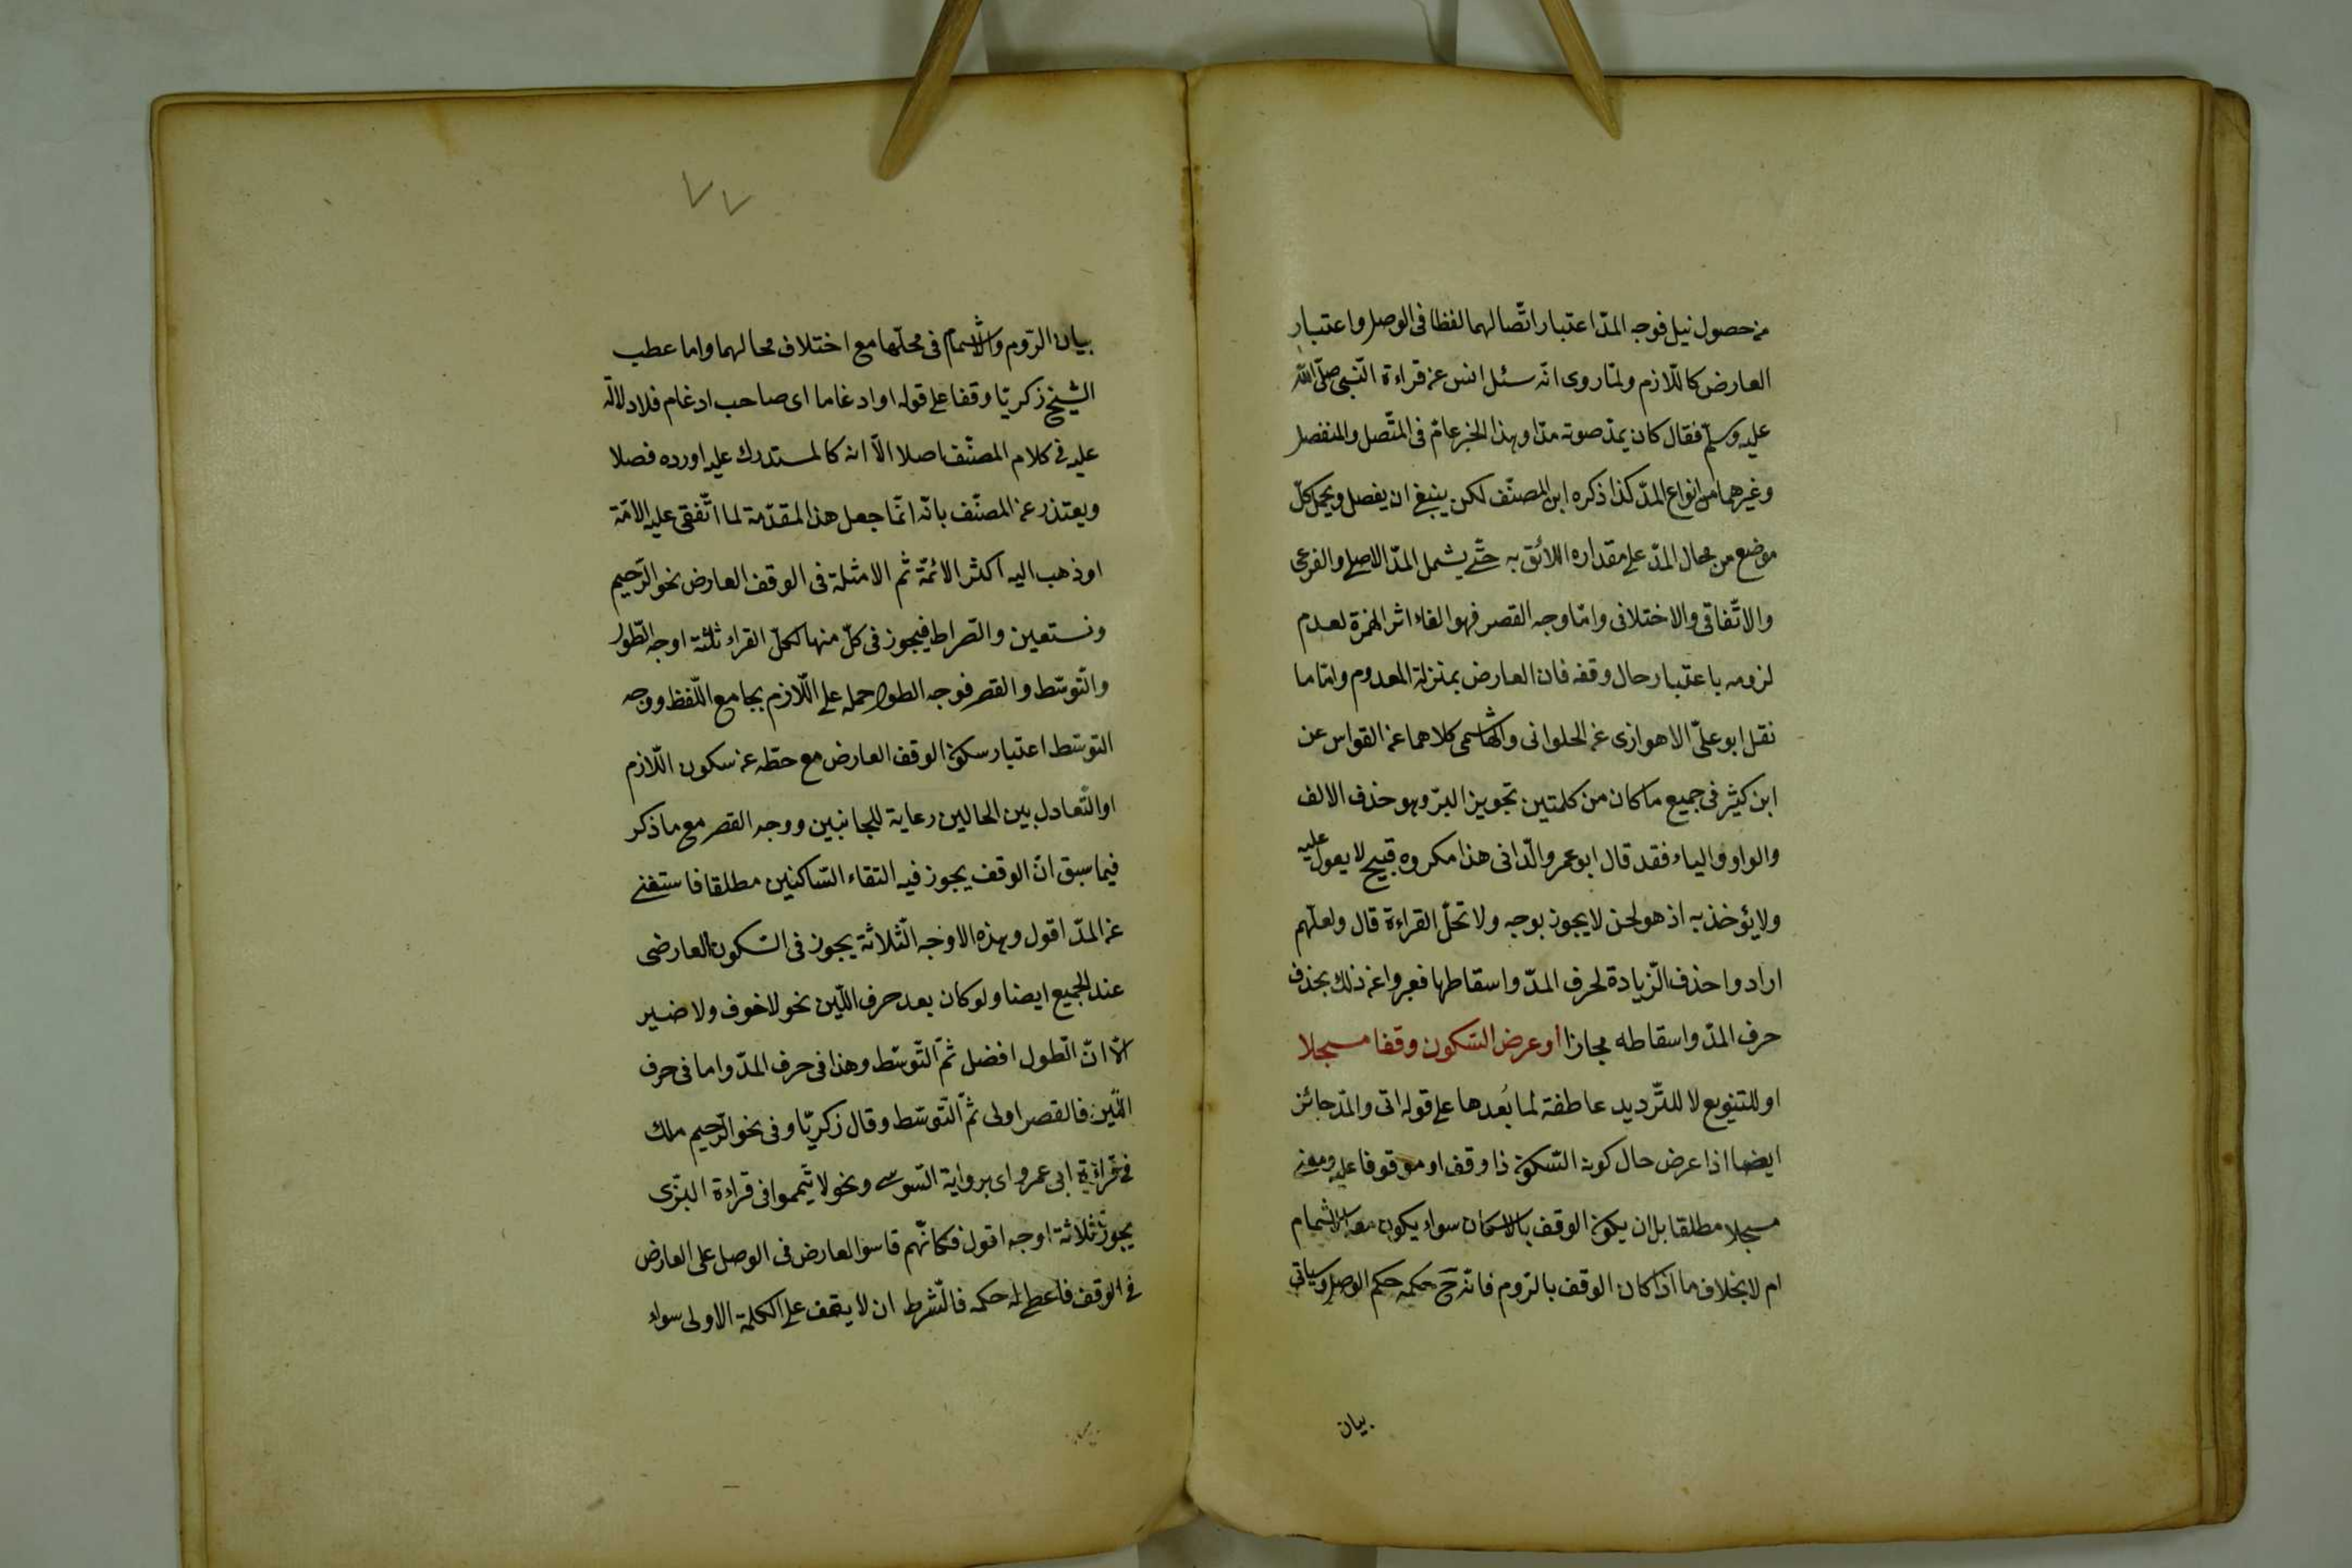 من حصول نيل فوجه المدّ اعتبار اتّصالهما لفظا فى الوصل واعتبار
العارض كاللّازم ولمّا روى انّه سئل انس عن قراءة النّبى صلّى الله
عليه وسلّم فقال كان يمدّ صوته مدّا وهذا الخبر عامّ فى المتّصل والمنفصل
وغيرهما من انواع المدّ كذا ذكره ابن المصنّف لكن ينبغى ان يفصل ويحمل كلّ
موضع من محال المدّ على مقداره اللائق به حتّى يشمل المدّ الاصلى والفرعى
والاتّفاقى والاختلافى وامّا وجه القصر فهو الغاء اثر الهمزة لعدم
لزومه باعتبار حال وقفه فان العارض بمنزلة المعدوم وامّا ما
نقل ابو علىّ الاهوازى عن الحلوانى والهاشمى كلاهما عن القواس عن
ابن كثير فى جميع ما كان من كلمتين تجويز البرّ وهو حذف الالف
والواو والياء فقد قال ابو عمرو الدّانى هذا مكروه قبيح لا يعول عليه
ولا يؤخذ به اذ هو لحن لا يجوز بوجه ولا تحلّ القراءة قال ولعلّهم
ارادوا حذف الزّيادة لحرف المدّ واسقاطها فعبروا عن ذلك بحذف
حرف المدّ واسقاطه مجازا أو عرض السّكون وقفا مسجلا
او للتنويع لا للتّرديد عاطفة لما بُعدها على قوله اتى والمدّ جائز
ايضا اذا عرض حال كون السّكون ذا وقف او موقوفا عليه ومعنى
مسجلا مطلقا بل ان يكون الوقف بالاسكان سواء يكون معه الاشمام
ام لا بخلاف ما اذا كان الوقف بالرّوم فانّه ح حكمه حكم الوصل وسياتى
بيان
٧٧
بيان الرّوم والاشمام فى محلّها مع اختلاف محالهما واما عطب
الشّيخ زكريّا وقفا على قوله او ادغاما اى صاحب ادغام فلا دلالة
عليه فى كلام المصنّف اصلا الّا انه كالمستدرك عليه اورده فصلا
ويعتذر عن المصنّف بانّه انّما جعل هذا المقدّمة لما اتّفقى عليه الامّة
او ذهب اليه اكثر الائمّة ثم الامثلة فى الوقف العارض نحو الرّحيم
ونستعين والصّراط فيجوز فى كلّ منها لكلّ القراء ثلثة اوجه الطّول
والتّوسّط والقصر فوجه الطول حمله على اللّازم بجامع اللّفظ ووجه
التوسّط اعتبار سكون الوقف العارض مع حطّه عن سكون اللّازم
او التّعادل بين الحالين رعاية للجانبين ووجه القصر مع ما ذكر
فيما سبق انّ الوقف يجوز فيه التقاء السّاكنين مطلقا فاستغنى
عن المدّ اقول وهذه الاوجه الثّلاثة يجوز فى السّكون العارضى
عند الجميع ايضا ولو كان بعد حرف اللّين نحو لا خوف ولا ضير
الّا انّ الطول افضل ثمّ التّوسّط وهذا فى حرف المدّ واما فى حرف
اللّين فالقصر اولى ثمّ التّوسّط وقال زكريّا وفى نحو الرّحيم ملك
فى قراءة ابى عمرو اى برواية السّوسى ونحو لا تّيمموا فى قراءة البزّى
يجوز ثلاثة اوجه اقول فكانّهم قاسوا العارض فى الوصل على العارض
فى الوقف فاعطى له حكمه فالشّرط ان لا يقف على الكلمة الاولى سواء